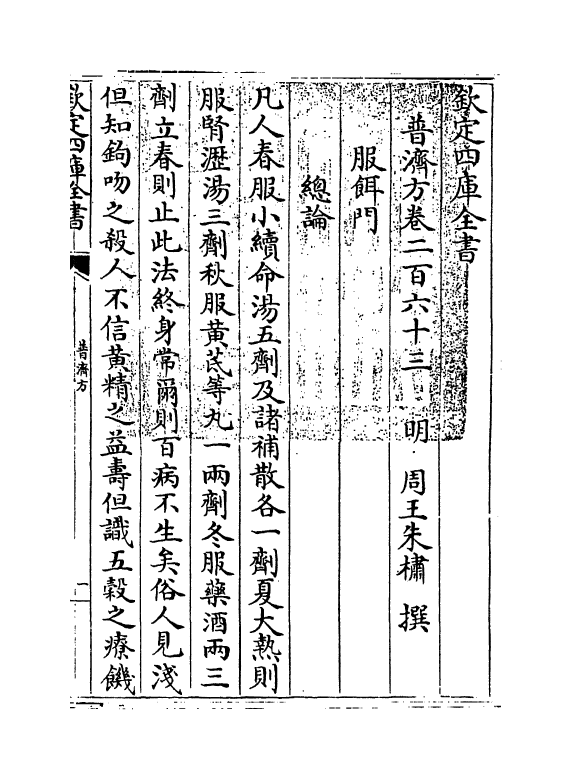 欽定四庫全書
普濟方卷二百六十三 明 周王朱橚 撰
服餌門
總論
凡人春服小續命湯五劑及諸補散各一劑夏大熱則
服腎瀝湯三劑秋服黄茋等丸一兩劑冬服藥酒兩三
劑立春則止此法終身常爾則百病不生矣俗人見淺
但知鉤吻之殺人不信黄精之益壽但識五穀之療饑
欽定四庫全書
普濟方
一